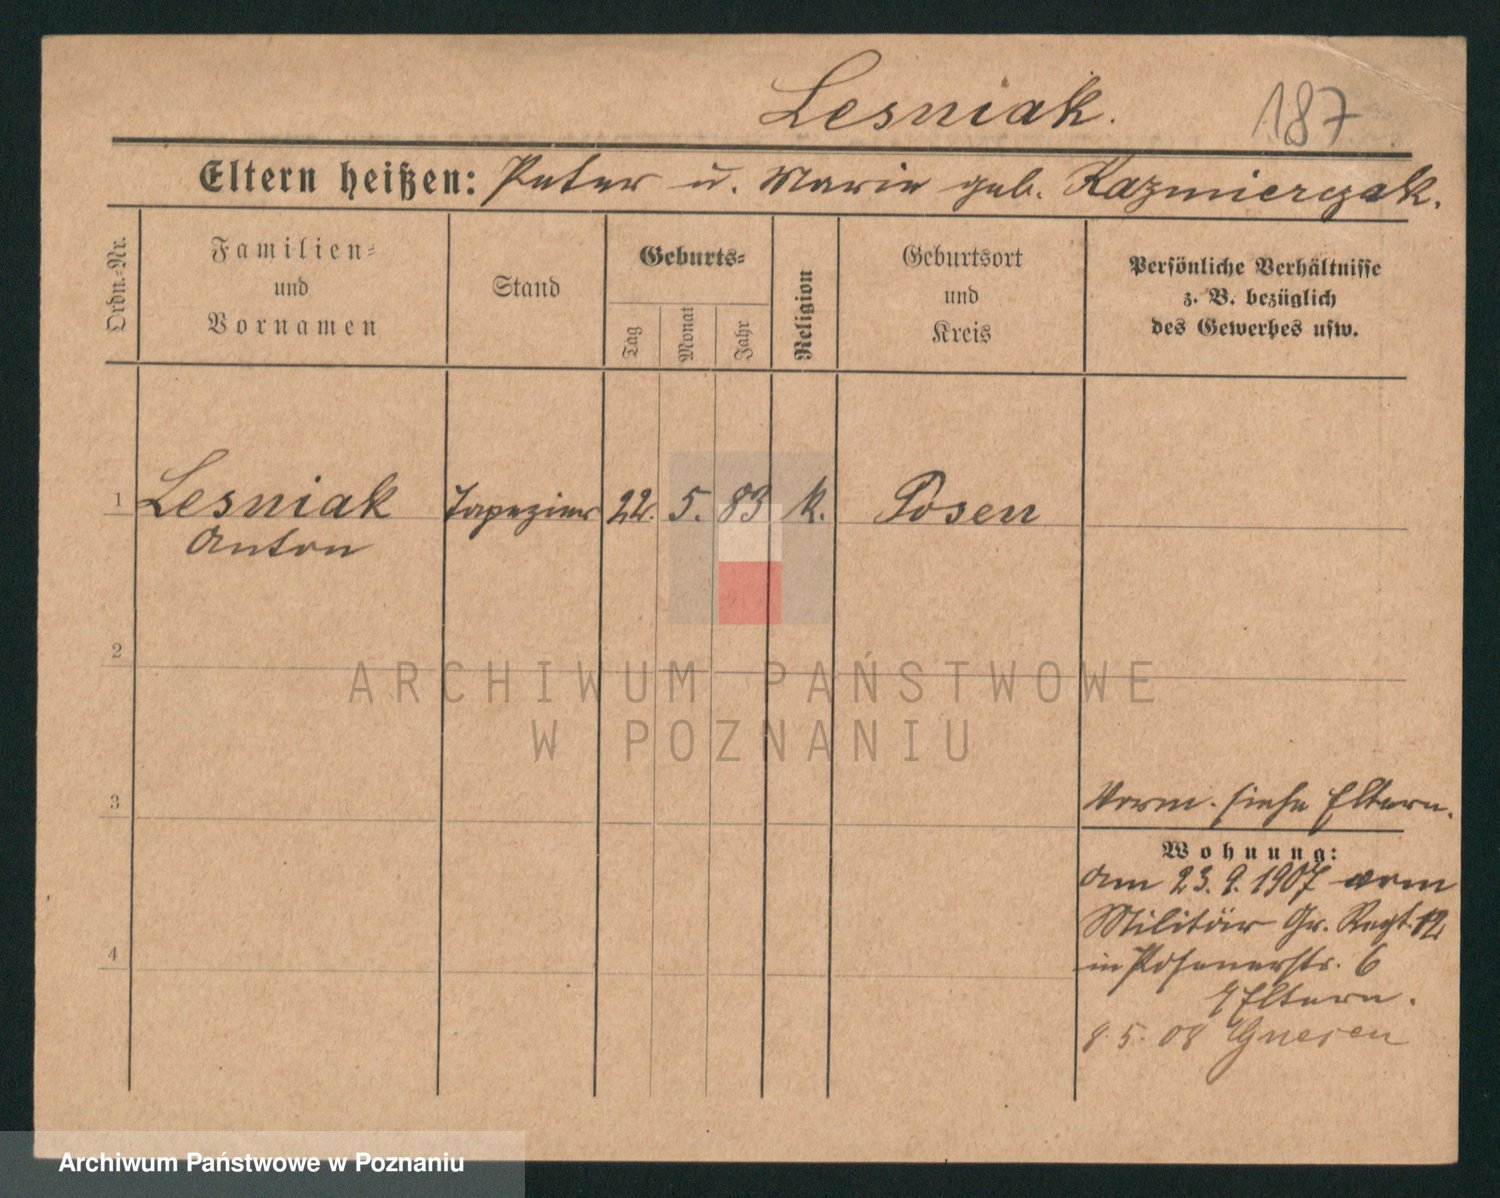 Lesniak.
187
Eltern heißen: Peter u. Marie geb. Kazmierczak.
Ordn.-Nr.
Familien-
und
Vornamen
Stand
Geburts-
Tag
Monat
Jahr
Religion
Geburtsort
und
Kreis
Persönliche Verhältnisse
z. B. bezüglich
des Gewerbes usw.
1 Lesniak Tapezierer 22. 5. 83 k. Posen
Anton
2
ARCHIWUM PAŃSTWOWE
W POZNANIU
3
Vorm. siehe Eltern.
Wohnung:
Am 23. 9. 1907 vom
Militär Gr. Regt. 12
in Posenerstr. 6
4
Eltern.
8. 5. 08 Gnesen
Archiwum Państwowe w Poznaniu